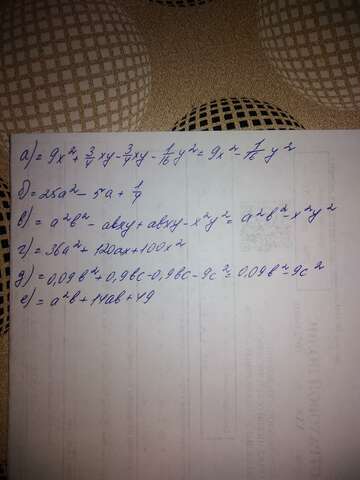 а) = 9x² + 3/4 xy - 3/4 xy - 1/16 y² = 9x² - 1/16 y²
б) = 25a² - 5a + 1/4
в) = a²b² - abxy + abxy - x²y² = a²b² - x²y²
г) = 36a² + 120ax + 100x²
д) = 0,09b² + 0,9bc - 0,9bc - 9c² = 0,09b² - 9c²
е) = a²b + 14ab + 49